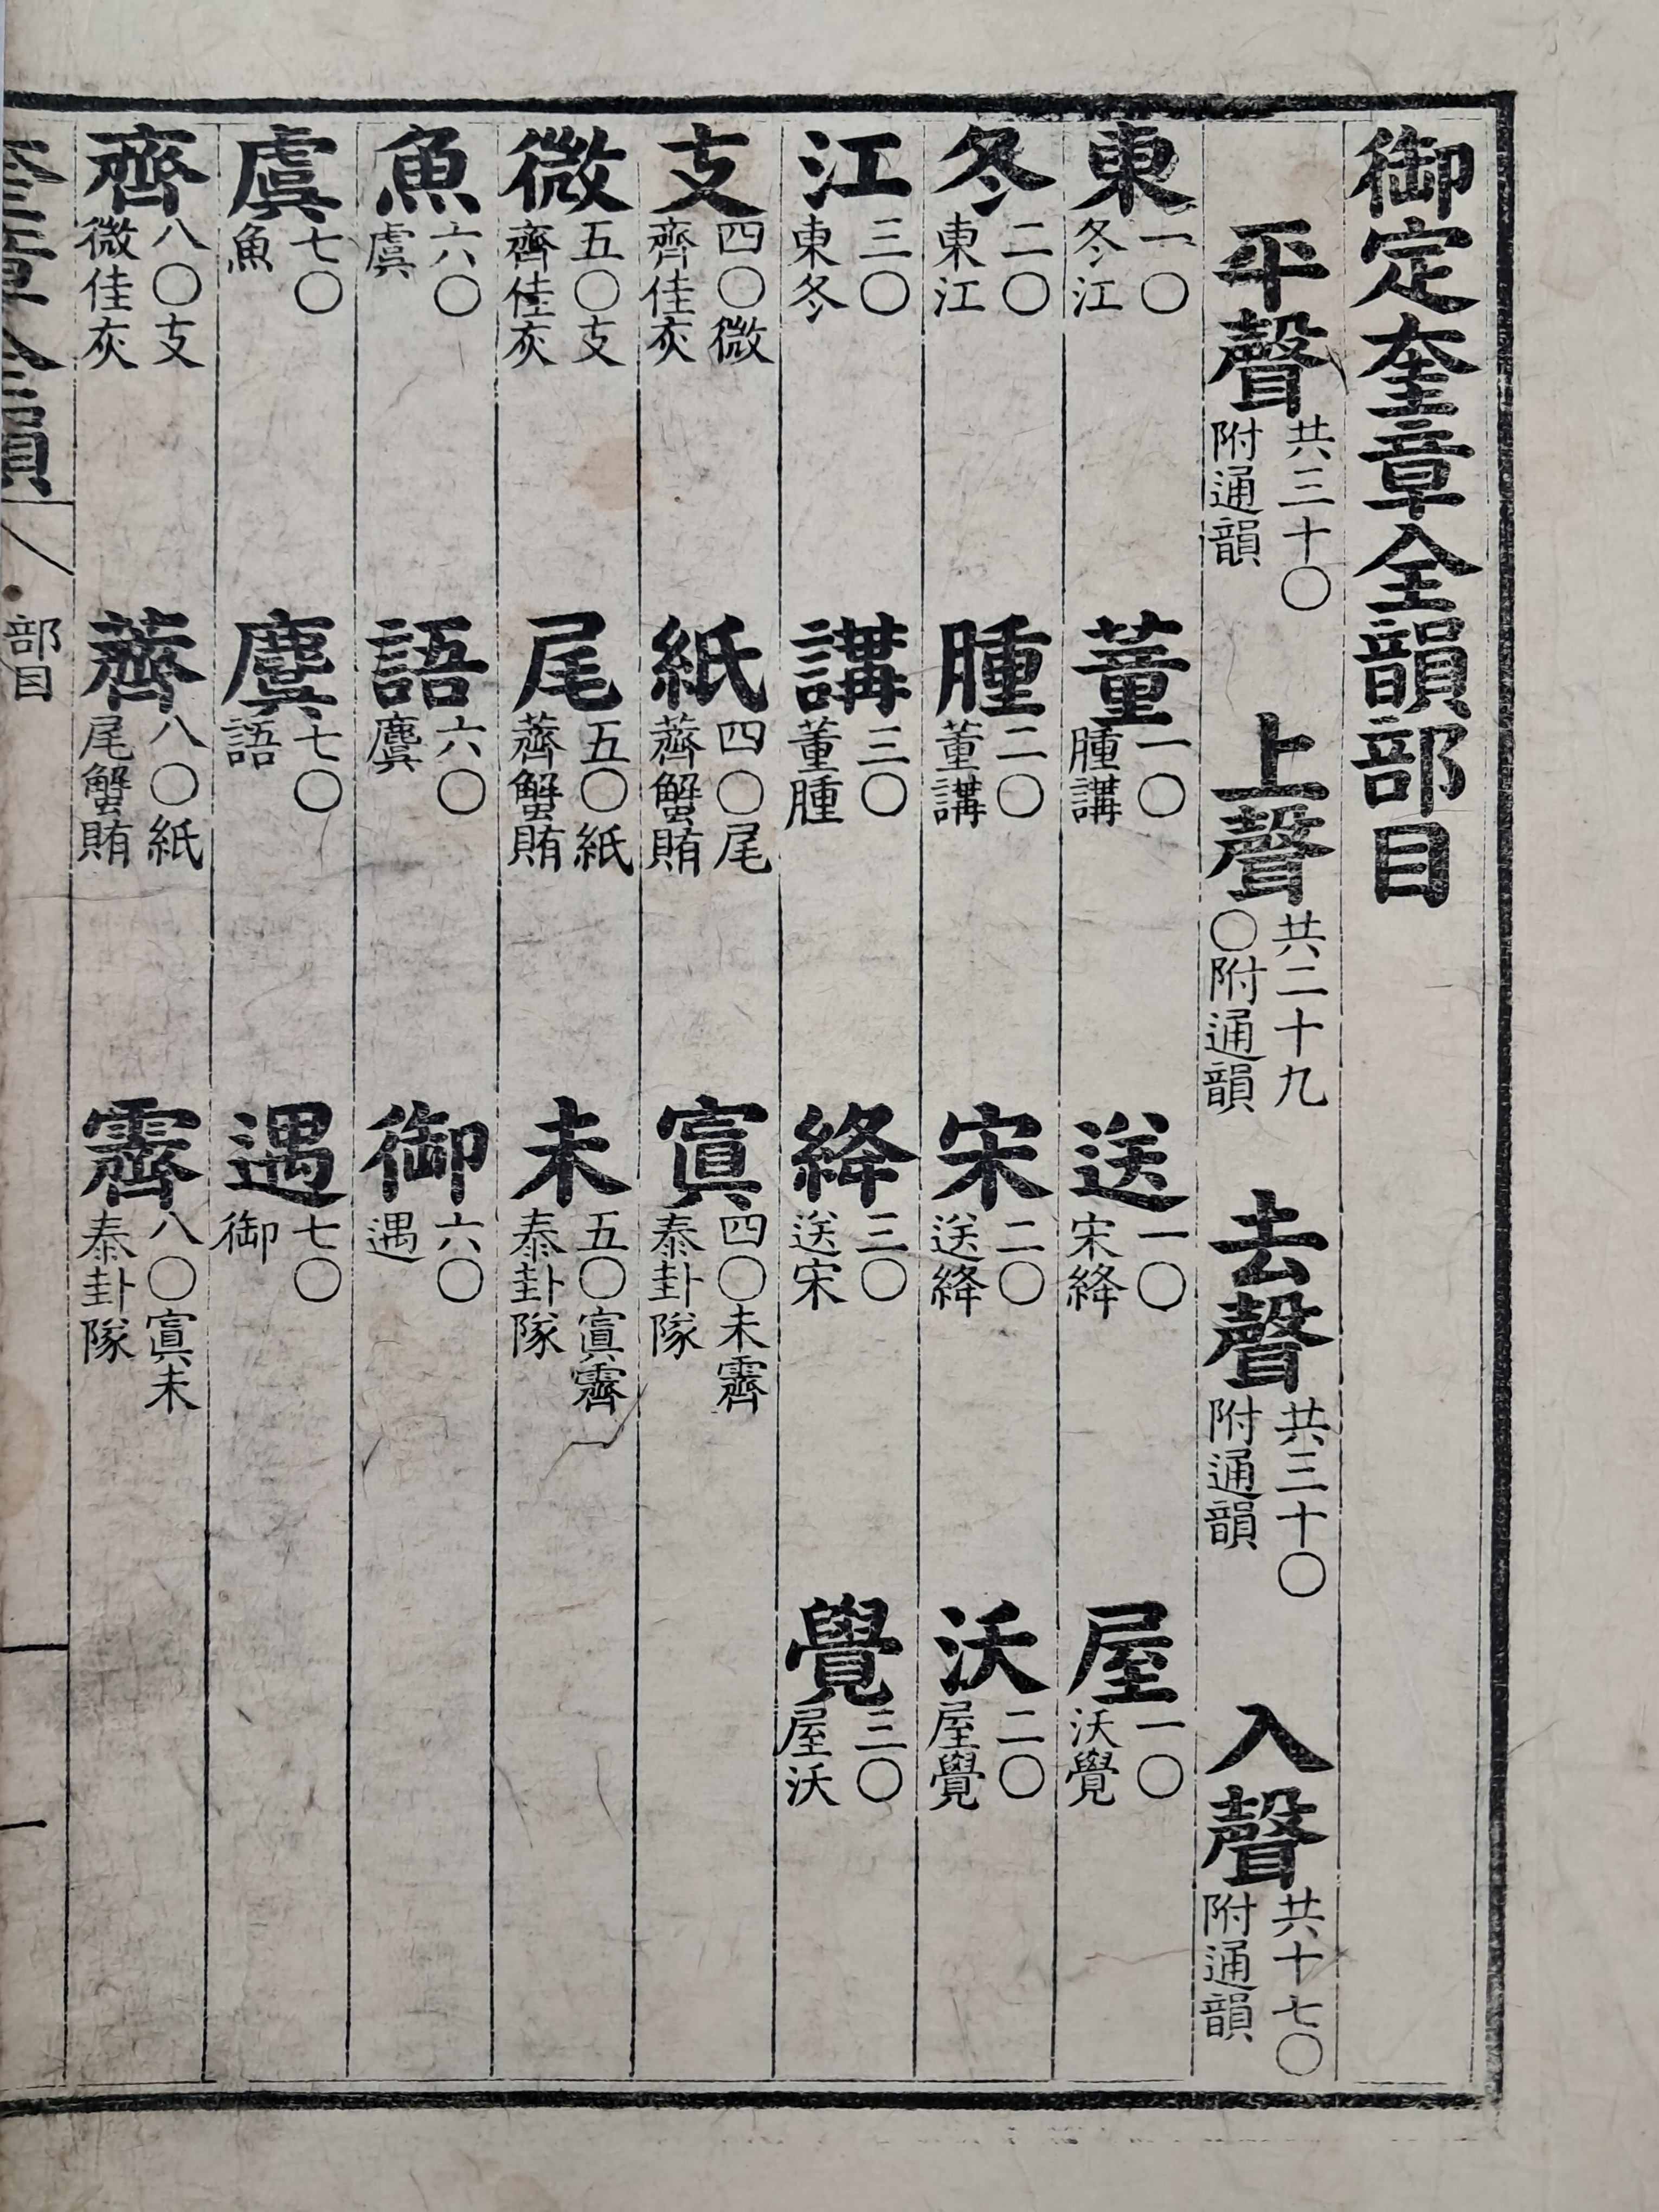 御定奎章全韻部目
平聲共三十〇附通韻 上聲共二十九〇附通韻 去聲共三十〇附通韻 入聲共十七〇附通韻
東一〇冬江 董一〇腫講 送一〇宋絳 屋一〇沃覺
冬二〇東江 腫二〇董講 宋二〇送絳 沃二〇屋覺
江三〇東冬 講三〇董腫 絳三〇送宋 覺三〇屋沃
支四〇微齊佳灰 紙四〇尾薺蟹賄 寘四〇未霽泰卦隊
微五〇支齊佳灰 尾五〇紙薺蟹賄 未五〇寘霽泰卦隊
魚六〇虞 語六〇麌 御六〇遇
虞七〇魚 麌七〇語 遇七〇御
齊八〇支微佳灰 薺八〇紙尾蟹賄 霽八〇寘未泰卦隊
奎章全韻 部目 一